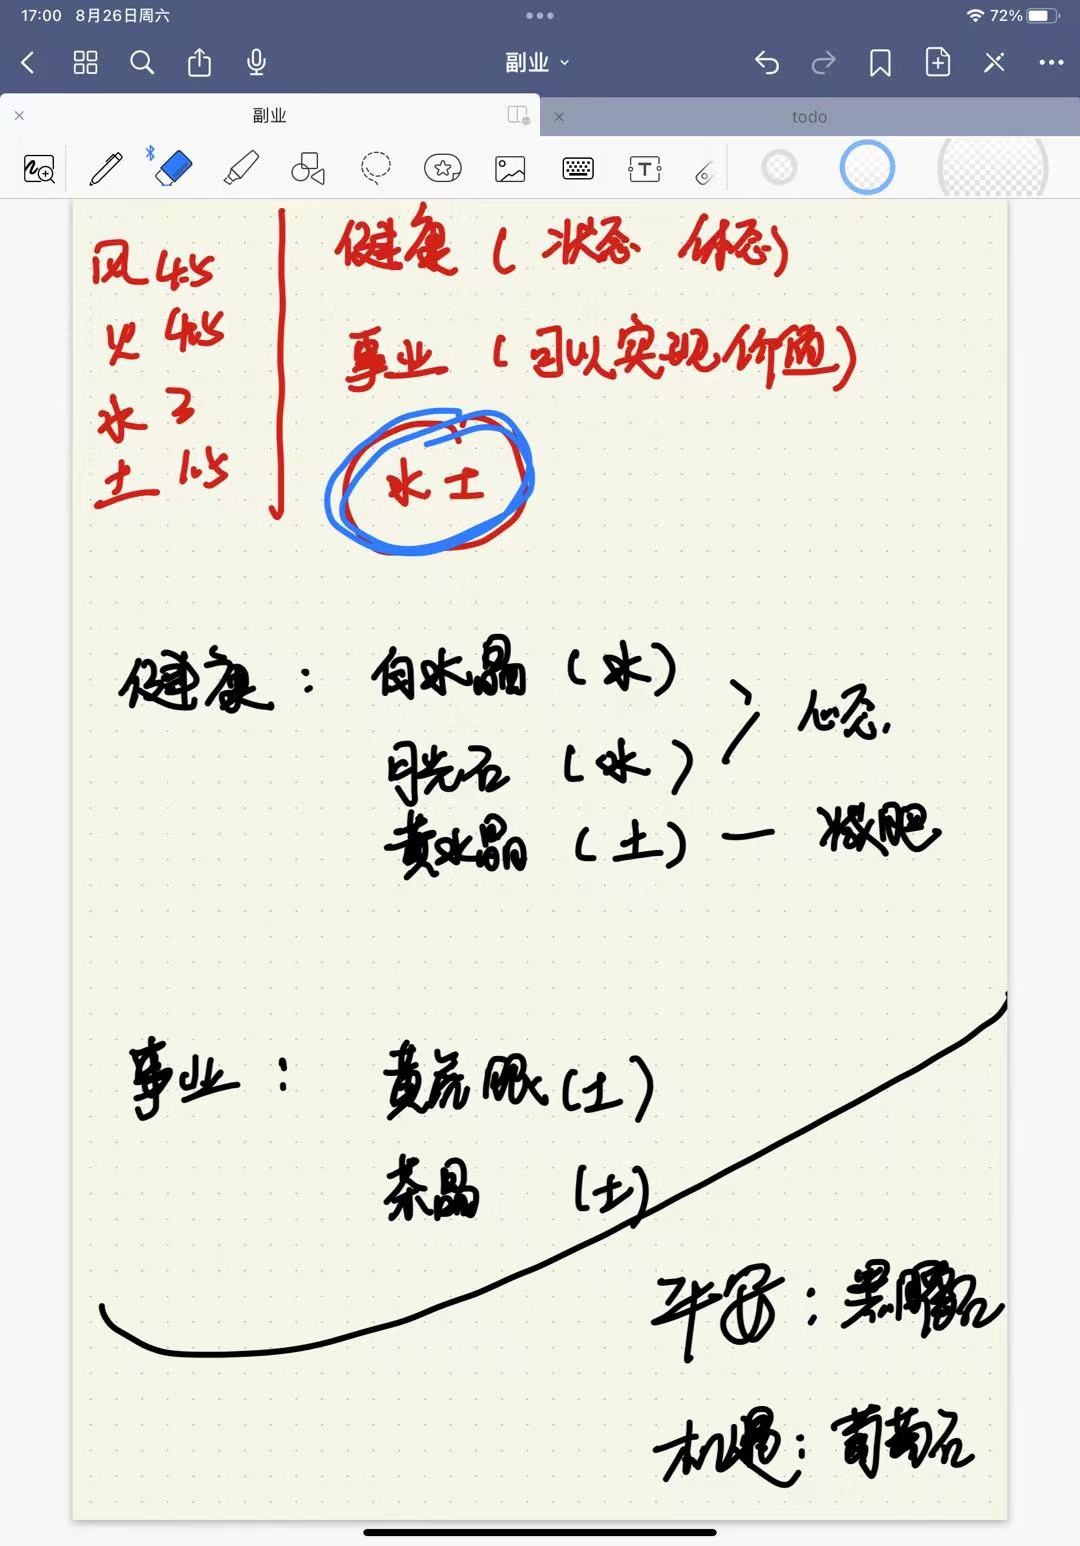 17:00 8月26日周六
72%
副业
副业
todo
风 4.5
火 4.5
水 3
土 1.5
健康（状态 体态）
事业（可以实现价值）
水 土
健康：白水晶（水）
月光石（水）
心态.
黄水晶（土）— 减肥
事业：黄虎眼（土）
茶晶（土）
平安：黑曜石
机遇：葡萄石